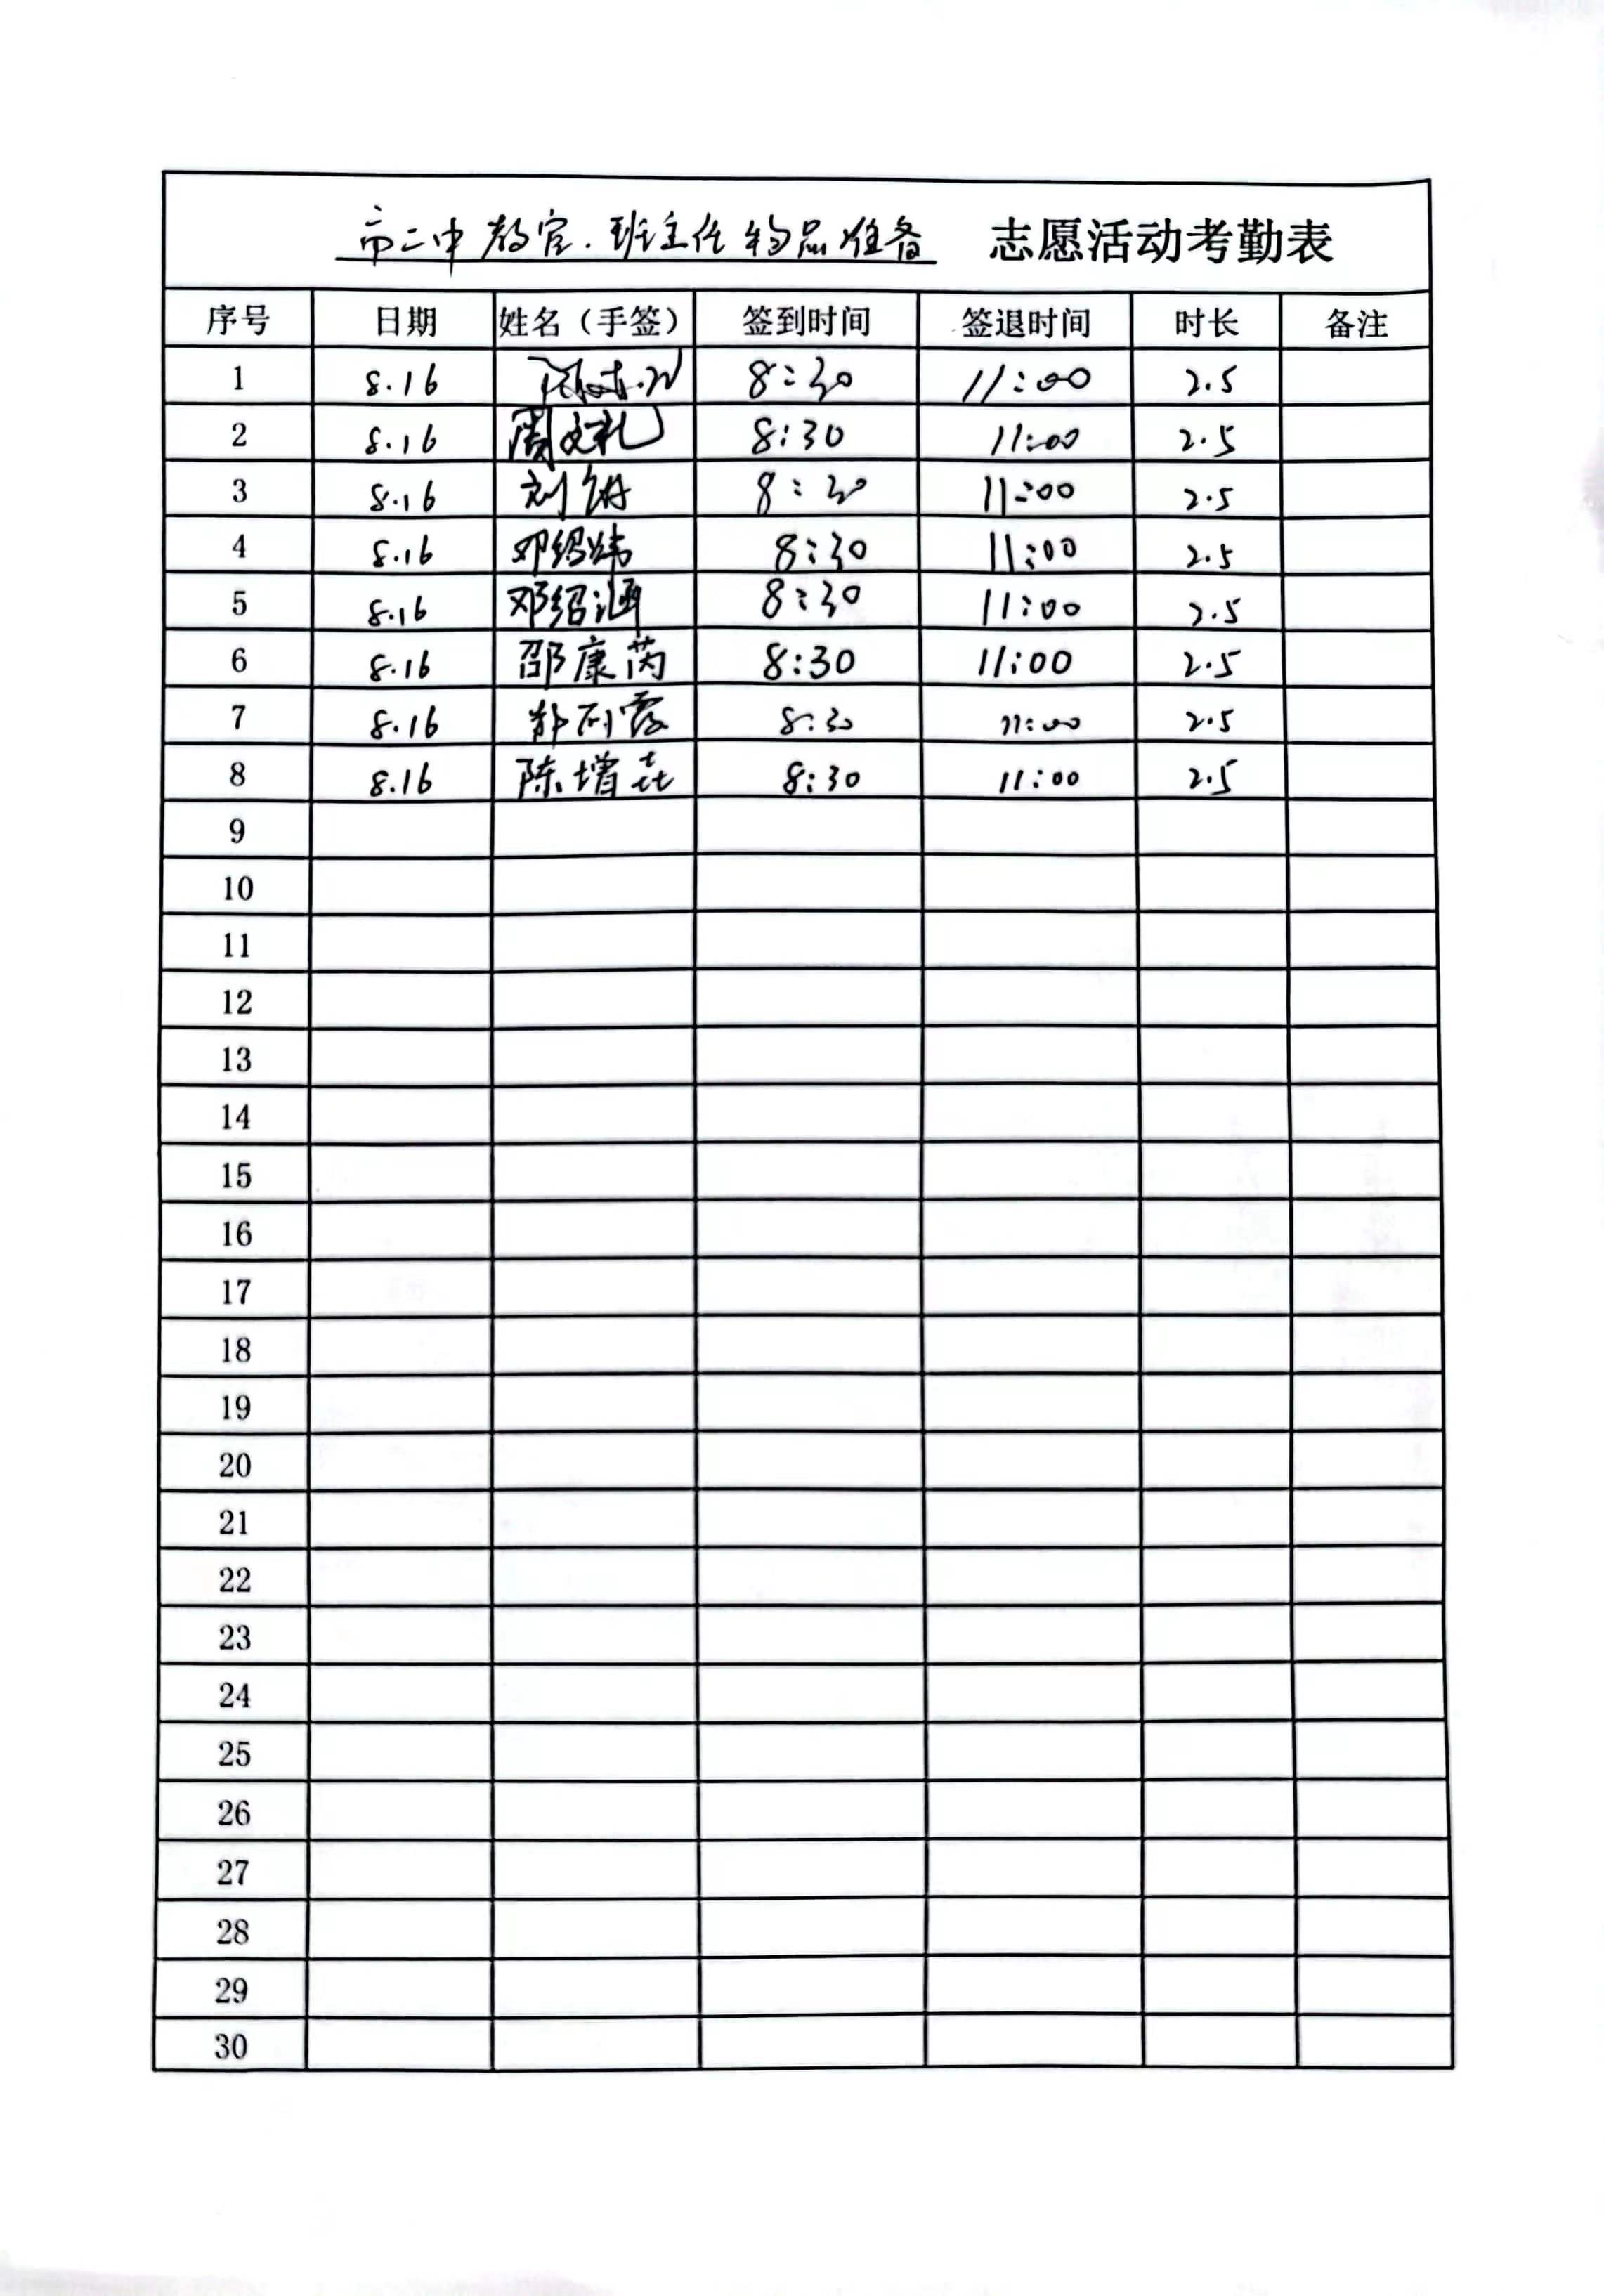 市二中教官.班主任物品准备 志愿活动考勤表
序号 日期 姓名（手签） 签到时间 签退时间 时长 备注
1 8.16 8:30 11:00 2.5
2 8.16 周文礼 8:30 11:00 2.5
3 8.16 刘 8:30 11:00 2.5
4 8.16 邓绍炜 8:30 11:00 2.5
5 8.16 邓绍涵 8:30 11:00 2.5
6 8.16 邵康芮 8:30 11:00 2.5
7 8.16 8:30 11:00 2.5
8 8.16 陈增垚 8:30 11:00 2.5
9
10
11
12
13
14
15
16
17
18
19
20
21
22
23
24
25
26
27
28
29
30